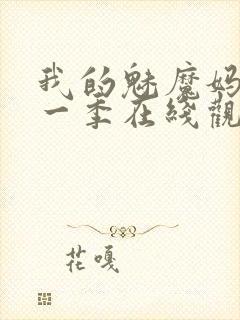 我的魅魔妈
一季在线觀
花嘎